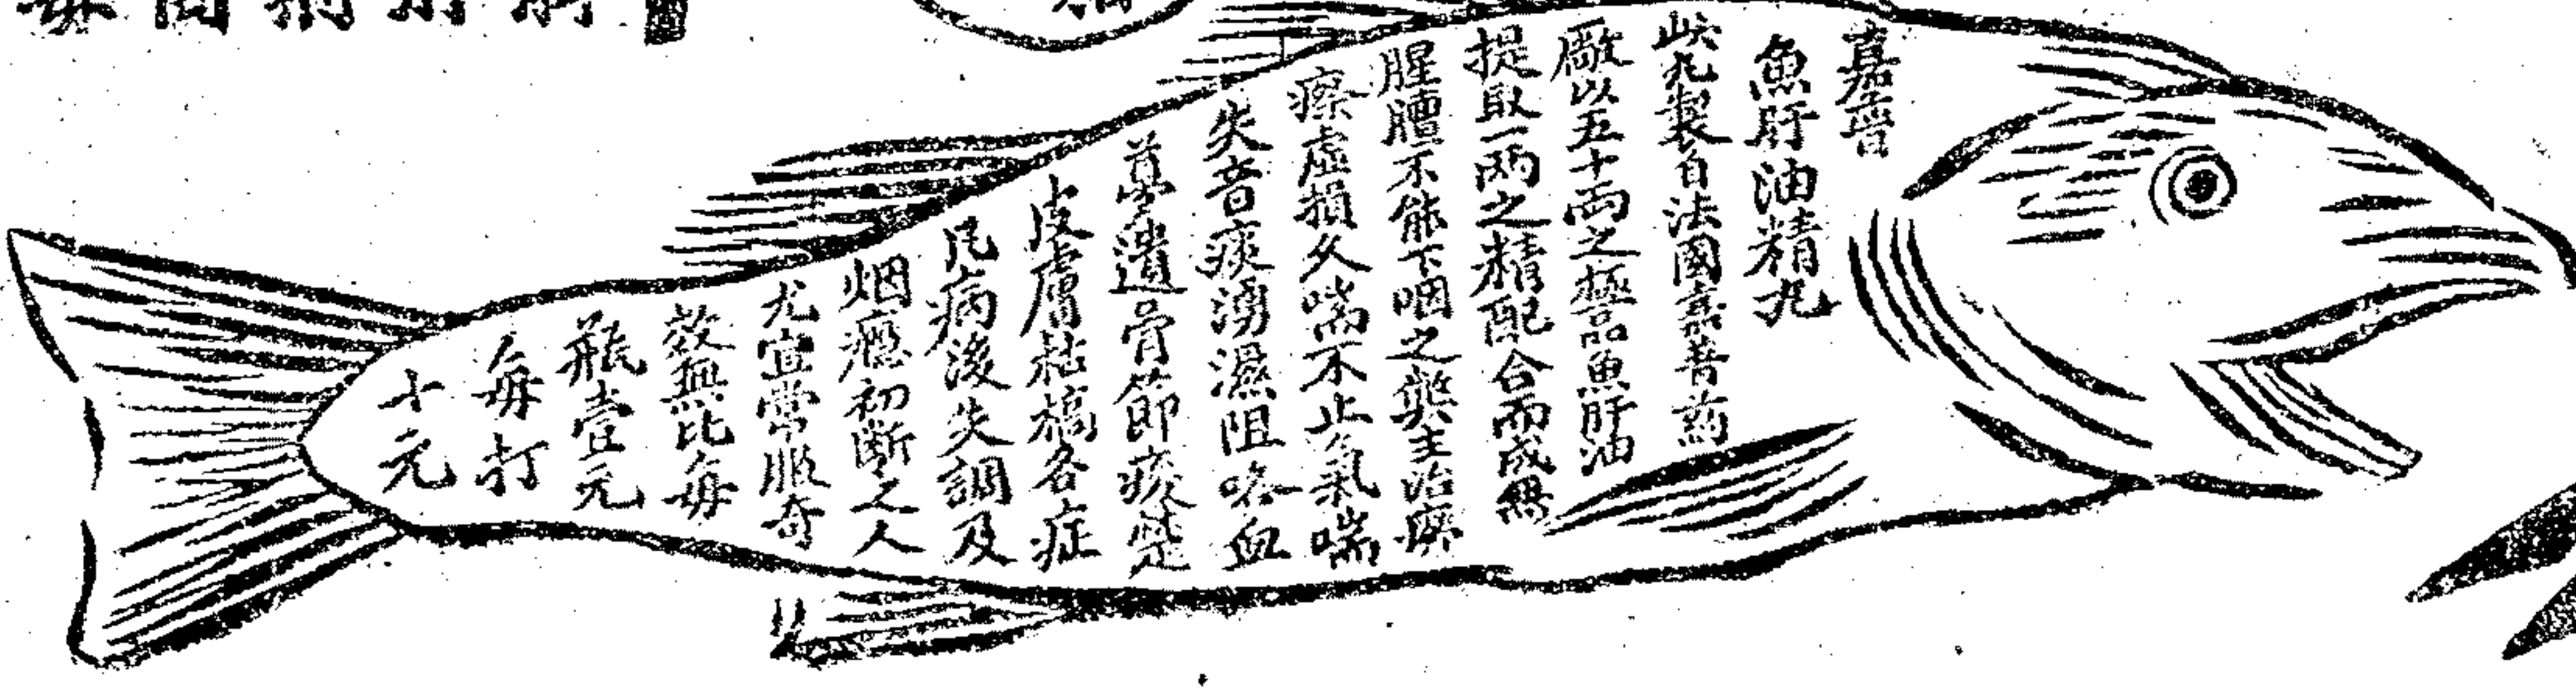 嘉普
魚肝油精丸
此丸製自法國嘉普葯
厰以五十両之極品魚肝油
提取一両之精配合而成無
腥膻不能下咽之獘主治癆
瘵虛損久喘不止氣喘
失音痰湧濕阻咯血
夢遺骨節痠楚
皮膚枯槁各症
凡病後失調及
烟癮初斷之人
尤宜常服奇
效無比每
瓶壹元
每打
十元